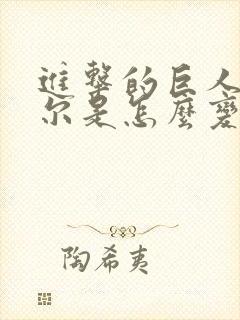 進擊的巨人
尔是怎麼變
陶希夷